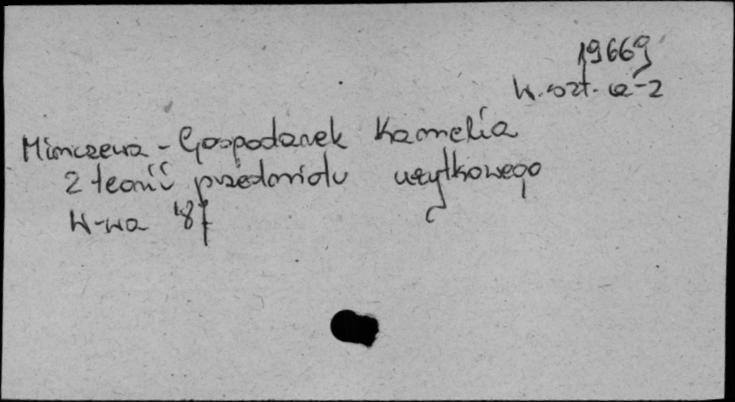 19669
W. szt. ia-2
Minczewa - Gospodarek Kamelia
Z teorii przedmiotu użytkowego
W-wa '87